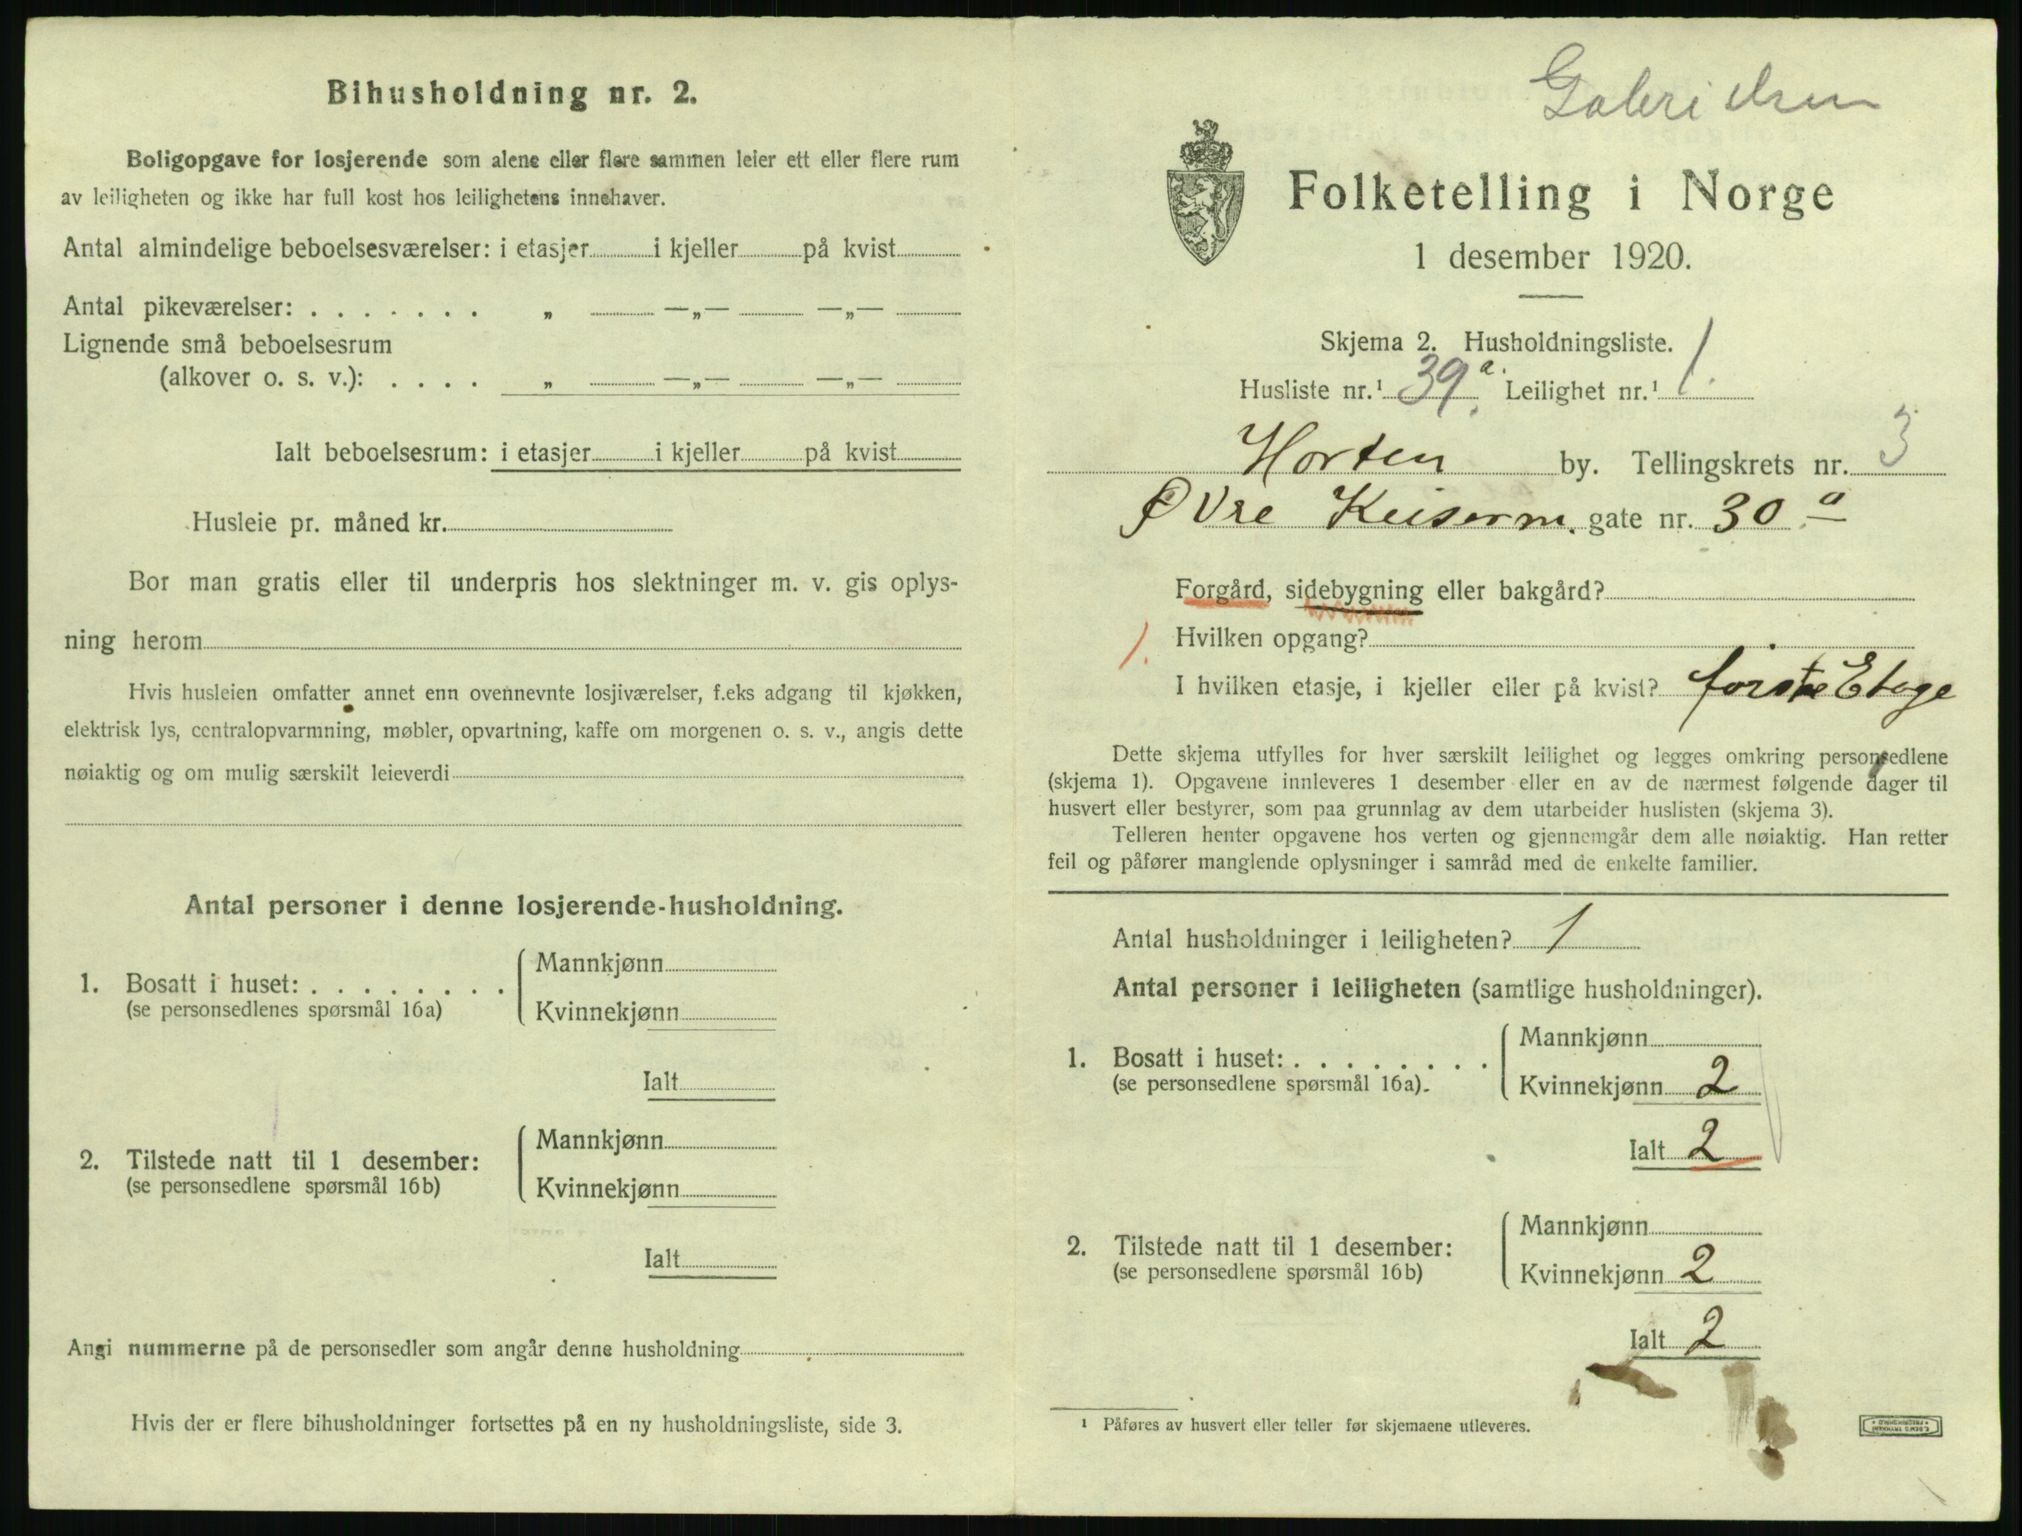 Bihusholdning nr. 2.
Boligopgave for losjerende som alene eller flere sammen leier ett eller flere rum
av leiligheten og ikke har full kost hos leilighetens innehaver.
Antal almindelige beboelsesværelser: i etasjer i kjeller på kvist
Antal pikeværelser: . . . . . . . „ —„— —„—
Lignende små beboelsesrum
(alkover o. s. v.): . . . . „ —„— —„—
Ialt beboelsesrum: i etasjer i kjeller på kvist
Husleie pr. måned kr.
Bor man gratis eller til underpris hos slektninger m. v. gis oplys-
ning herom
Hvis husleien omfatter annet enn ovennevnte losjiværelser, f.eks adgang til kjøkken,
elektrisk lys, centralopvarmning, møbler, opvartning, kaffe om morgenen o. s. v., angis dette
nøiaktig og om mulig særskilt leieverdi
Antal personer i denne losjerende-husholdning.
1. Bosatt i huset: . . . . . . . .
(se personsedlenes spørsmål 16a)
Mannkjønn
Kvinnekjønn
Ialt
2. Tilstede natt til 1 desember:
(se personsedlene spørsmål 16b)
Mannkjønn
Kvinnekjønn
Ialt
Angi nummerne på de personsedler som angår denne husholdning
Hvis der er flere bihusholdninger fortsettes på en ny husholdningsliste, side 3.
Gabrielsen
Folketelling i Norge
1 desember 1920.
Skjema 2. Husholdningsliste.
Husliste nr.¹ 39a. Leilighet nr.¹ 1.
Horten by. Tellingskrets nr. 3
Øvre Keiserm. gate nr. 30 a
Forgård, sidebygning eller bakgård?
1. Hvilken opgang?
I hvilken etasje, i kjeller eller på kvist? første Etage
Dette skjema utfylles for hver særskilt leilighet og legges omkring personsedlene
(skjema 1). Opgavene innleveres 1 desember eller en av de nærmest følgende dager til
husvert eller bestyrer, som paa grunnlag av dem utarbeider huslisten (skjema 3).
Telleren henter opgavene hos verten og gjennemgår dem alle nøiaktig. Han retter
feil og påfører manglende oplysninger i samråd med de enkelte familier.
Antal husholdninger i leiligheten? 1
Antal personer i leiligheten (samtlige husholdninger).
1. Bosatt i huset: . . . . . . . .
(se personsedlene spørsmål 16a).
Mannkjønn
Kvinnekjønn 2
Ialt 2
2. Tilstede natt til 1 desember:
(se personsedlene spørsmål 16b)
Mannkjønn
Kvinnekjønn 2
Ialt 2
¹ Påføres av husvert eller teller før skjemaene utleveres.